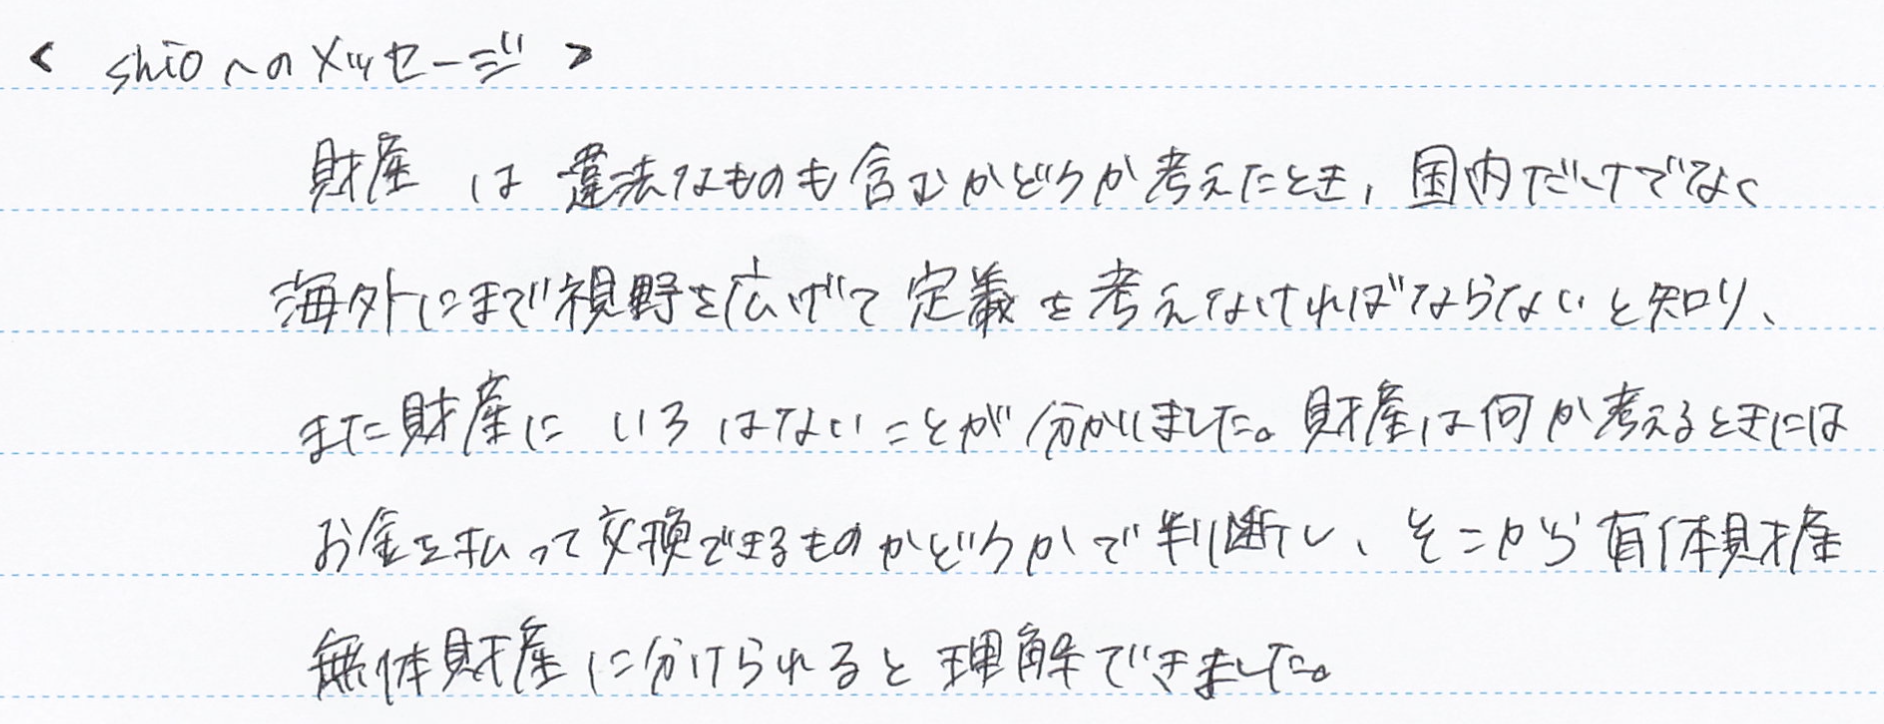 < shioへのメッセージ >
財産は違法なものも含むかどうか考えたとき，国内だけでなく
海外にまで視野を広げて定義を考えなければならないと知り、
また財産にいろはないことが分かりました。財産は何か考えるときには
お金を払って交換できるものかどうかで判断し、そこから有体財産
無体財産に分けられると理解できました。